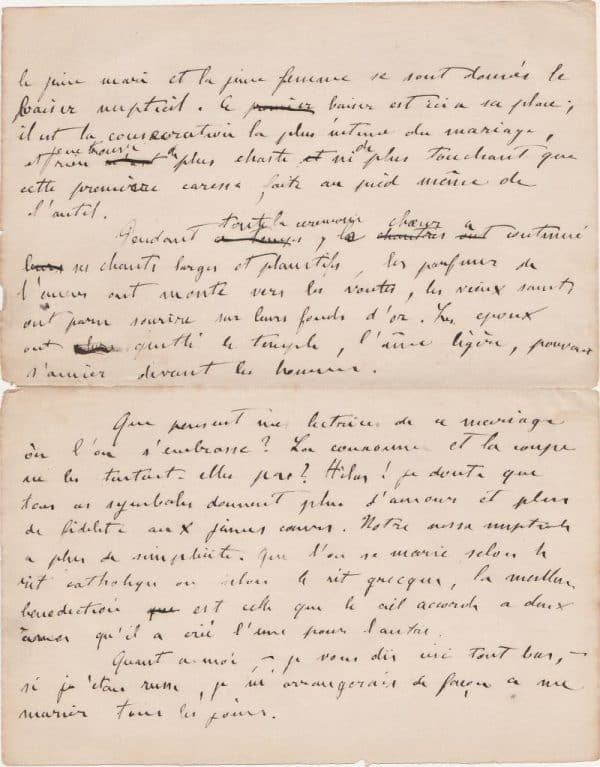 le jeune mari et la jeune femme se sont donnés le
baiser nuptial. Ce premier baiser est ici a sa place;
il est la consecration la plus intime du mariage,
je ne trouve
et rien n'est de plus chaste et ni de plus touchant que
cette première caresse faite au pied même de
l'autel.
toute la ceremonie chœur a
Pendant ce temps, le chantres ont continué
leurs ses chants larges et plaintifs, les parfums de
l'encens ont monté vers les voutes, les vieux saints
ont paru sourire sur leurs fonds d'or. Les epoux
ont quitté le temple, l'âme légère, pouvant
s'aimer devant les hommes.
Que pensent mes lectrices de ce mariage
où l'on s'embrasse? La couronne et la coupe
ne les tentent-elles pas? Hélas! je doute que
tous ces symboles donnent plus d'amour et plus
de fidelité aux jeunes cœurs. Notre messe nuptiale
a plus de simplicité. Que l'on se marie selon le
rit catholique ou selon le rit grecque, la meilleure
benediction que est celle que le ciel accorde a deux
âmes qu'il a créé l'une pour l'autre.
Quant a moi, — je vous dis ici tout bas, —
si j'étais russe, je m'arrangerais de façon a me
marier tous les jours.